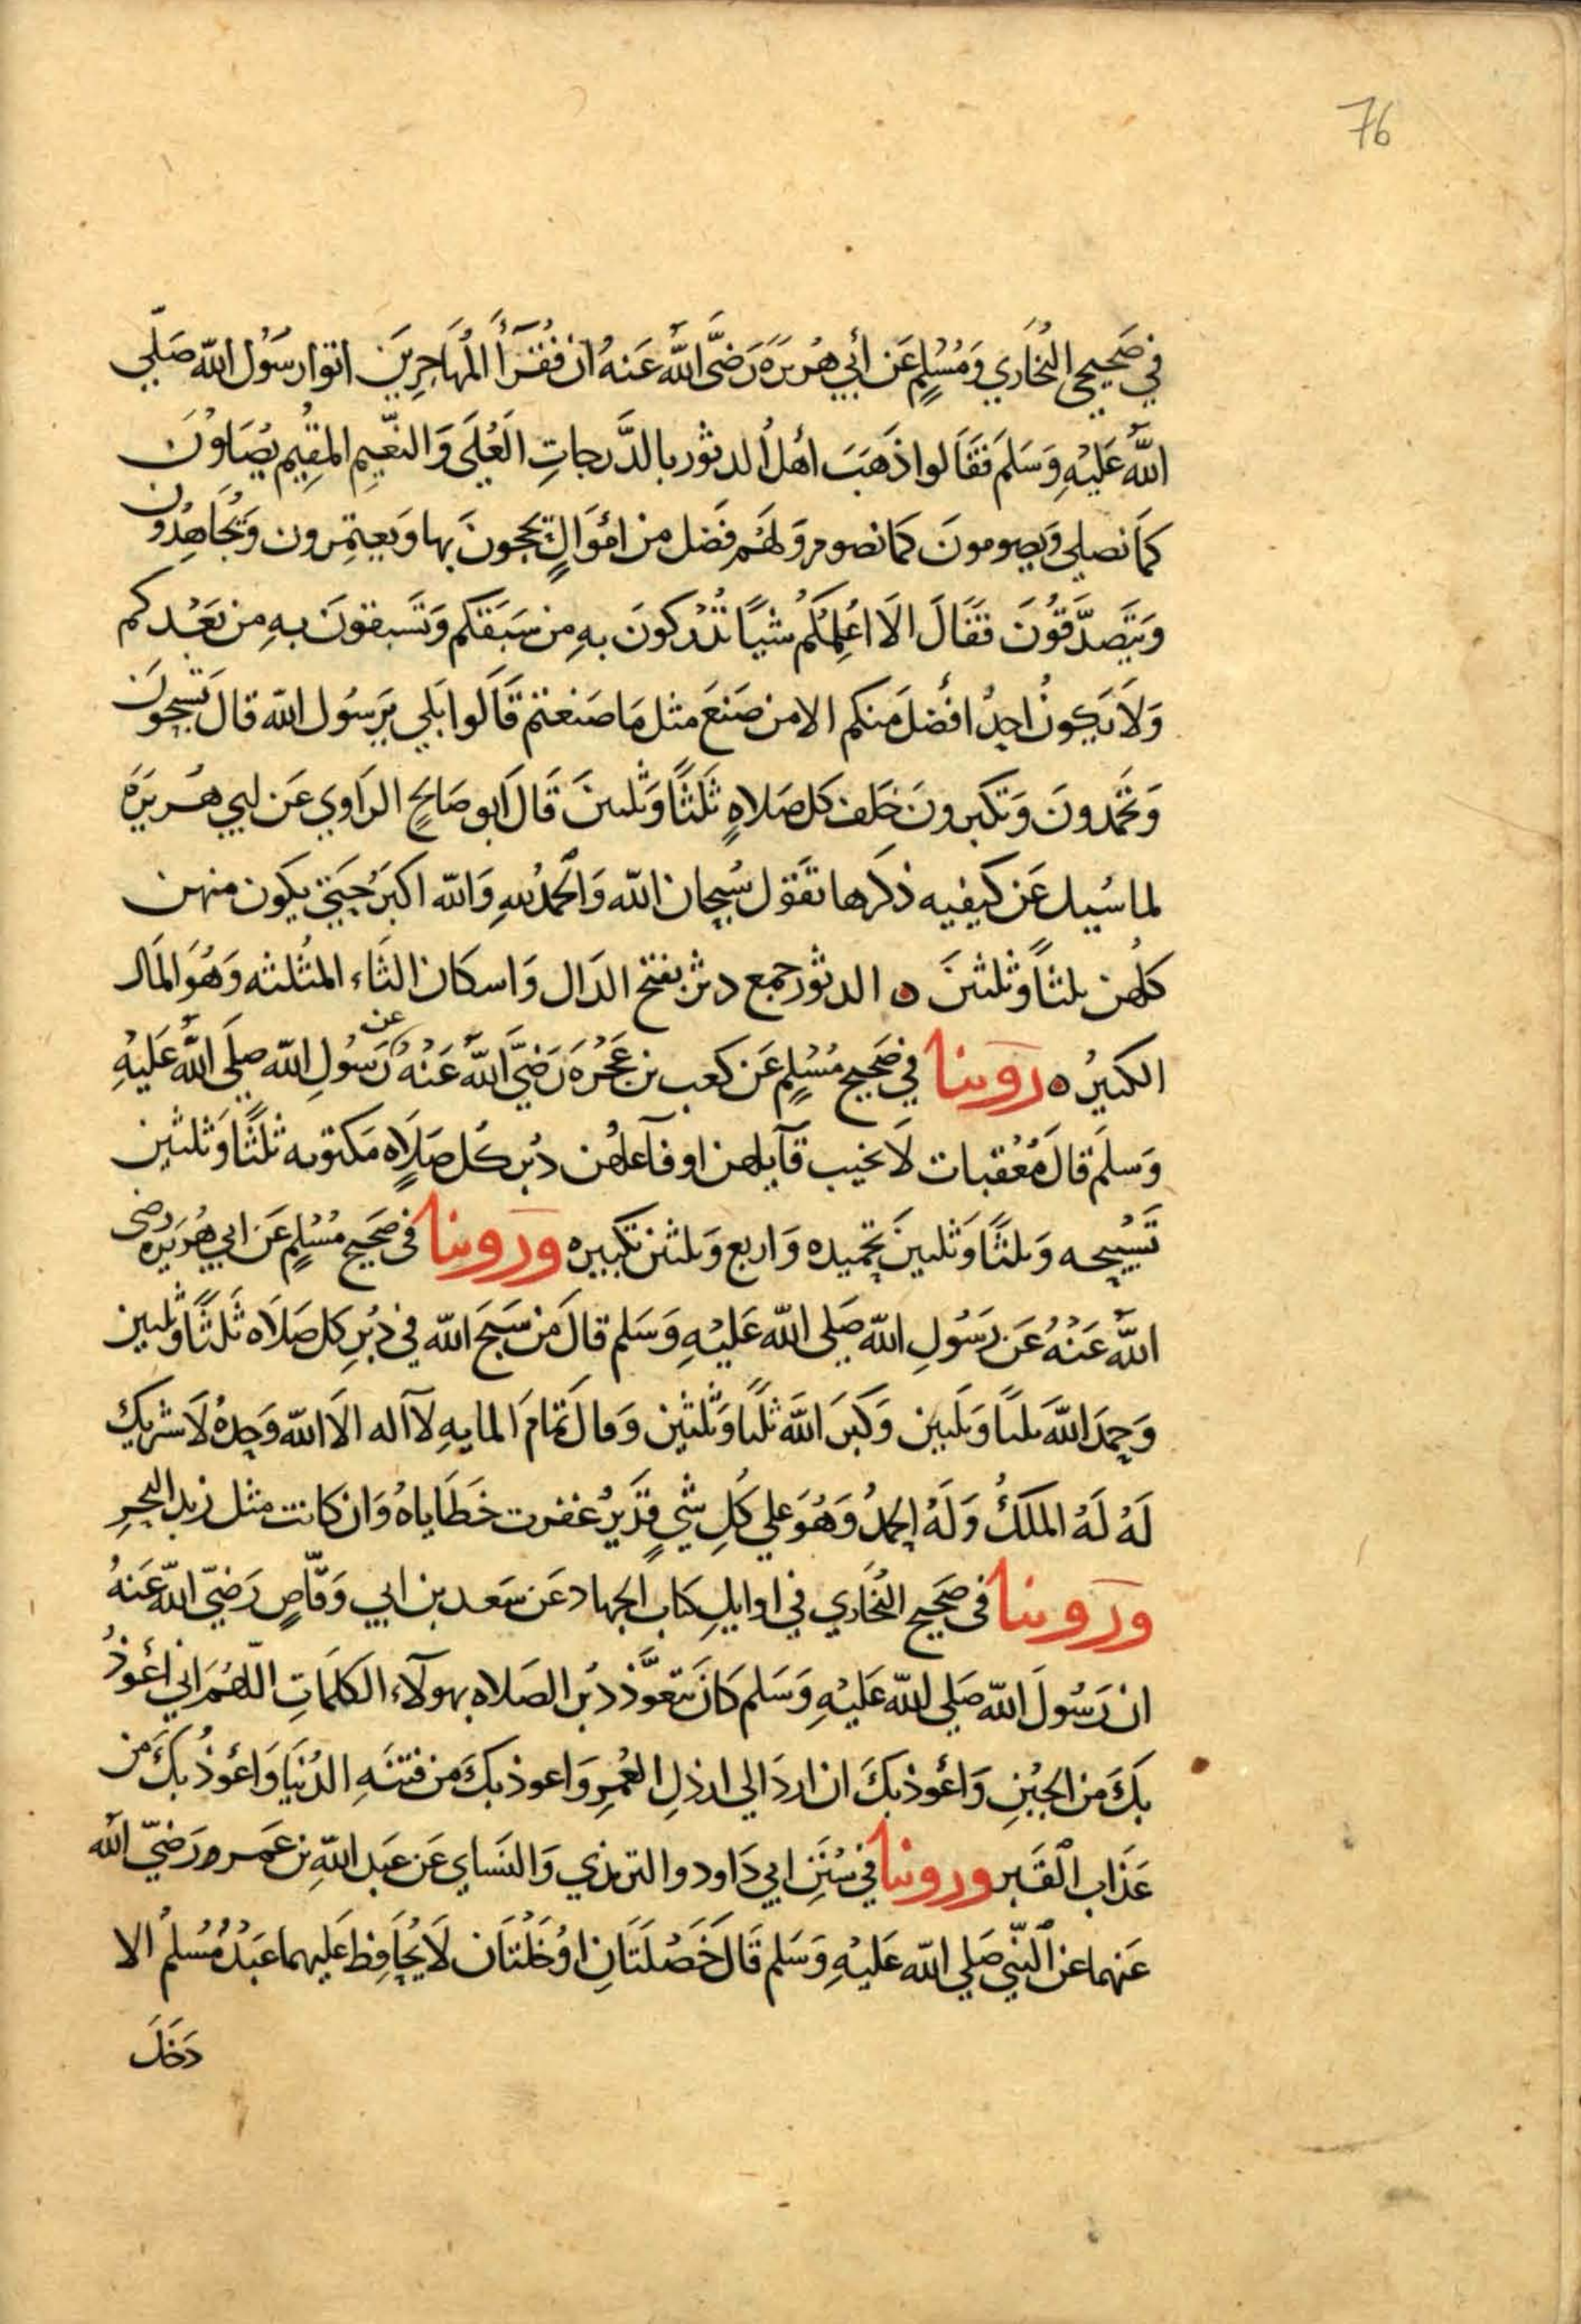 76
في صَحِيحي البُخَاري وَمُسْلِمٍ عَن أبي هُريرَةَ رَضَّى اللَّهُ عَنهُ ان فُقَرَأُ المُهَاجِرِينَ اتوا رسَوُل الله صَلّي
اللَّهُ عَلَيْهِ وَسَلَمَ فَقَالوا ذَهَبَ أهْلُ الدثوُر بالدَّرجاتِ العُلَى وَالنعّيمِ المقِيُم يُصَلوُنَ
كمَا نصلي وَيصومونَ كمَا نصومر وَلهَمُ فَضَل من امْوَالٍ يحجونَ بها وَيَعتمِرون وَيجَاهِدُون
وَيَتَصدَّقُونَ فقَالَ الاَ اعُلِمُكُم شيًا تُدْركونَ بهِ من سَبَقكم وَتَسبقونَ بهِ من بَعْدكم
وَلاَ يَكونُ احِدٌ افضَل مَنكم الا من صَنعَ مثل مَا صَنعتم قَالوا بَلي يَرسُول الله قال تسَبحونَ
وَتحمَدونَ وَتكبرونَ خلف كل صَلاهٍ ثَلثًا وَثلىنَ قَال ابَو صَالحٍ الراوي عَن ابي هُريَرَه
لما سُيل عَن كيفيه ذكرها تقَوَل سُبحان الله وَالحمدُ للهِ وَالله اكبَرُ حَتيّ يكَون منهن
كلُهن ىلثًا وَثلثىنَ ه الدثوُر جمع دثر بفتح الدَال وَاسكان الثَاء المثُلثه وَهُوَ المَال
الكثيرُ ه روينا في صَحيحِ مُسْلِمٍ عَن كعب بن عَجُرهَ رَضَيّ اللَّه عَنْهُ عن رَسُولِ الله صلي اللَّهُ عَلَيْهِ
وَسلَم قالَ مُعُقبات لاَ يخيب قآيلهن او فآعلهُن دُبر كُل صَلاَهٍ مَكتوبه ثَلثًا وَثلثين
تَسْبيحه وَىلثًا وَثلىينَ تحمِيده وَاربع وَىلثىن تكبيره وَروينا فى صَحَيح مُسْلِم عَن ابي هُرَيَره رضى
اللَّهُ عَنْهُ عَن رَسُولِ الله صَلي الله عَليْهِ وَسَلم قالَ مَن سَبحَ الله في دُبرِ كل صَلاَه ثَلثًا وَثلىين
وَحمِدَ اللهَ ىلىًا وَىلَىين وَكَبرَ اللهَ ثلىًا وَثَلثين وَقال تمَامَ المايهِ لاَ اله الاَ الله وَحِدهُ لاَ شَريك
لَهُ لَهُ الملكُ وَلَهُ الحِمدُ وَهُوَ علي كُلِ شيٍ قدَيرٌ غفرت خطَاياهُ وَان كانت مثل زبد البحرِ
وَروينا فى صَحَيح البُخاري في اوايلِ كتاب الجهاد عَن سَعد بن ابي وَقّاصٍ رَضيّ الله عَنهُ
ان رَسُولَ الله صَلي الله عَليْهِ وَسَلم كانَ يتعوَّذ دبُر الصَلاه بهولآءِ الكلمَاتِ اللّهمُ اني أعوذُ
بكَ من الجبُنِ وَأعُوذ بكَ ان اردَ الي ارذلِ العُمرِ وَاعوذ بكَ من فتنَهِ الدُنيَا وَاعُوذُ بكَ من
عَذَاب القَبر وروينا في سُنَنِ ابي دَاود والترمذي وَالنسَاي عَن عَبد اللهِ بن عَمرو رَضيّ الله
عَنهما عن النَّبيّ صَلي الله عَليْهِ وَسَلم قَالَ خَصْلَتَانِ اوُ خَلْتَان لاَ يحُافِظ عَليهما عَبدُ مُسْلمُ الا
دَخَلَ